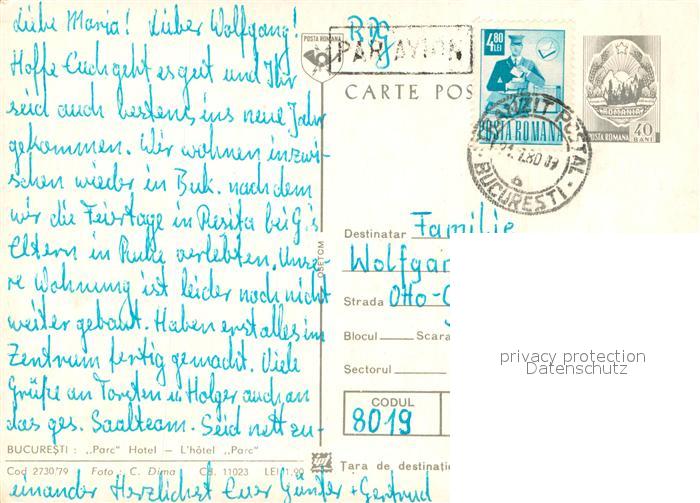 Liebe Maria! Lieber Wolfgang!
Hoffe Euch geht es gut und Ihr
seid auch bestens ins neue Jahr
gekommen. Wir wohnen inzwi-
schen wieder in Buk. nachdem
wir die Feiertage in Resita bei G's
Eltern in Ruhe verlebten. Unse-
re Wohnung ist leider noch nicht
weiter gebaut. Haben erst alles im
Zentrum fertig gemacht. Viele
Grüße an Torsten u. Holger auch an
das ges. Saalteam. Seid nett zu-
einander Herzlichst Euer Günter + Gertrud
BUCUREȘTI : „Parc" Hotel — L'hôtel „Parc"
Cod 2730/79 Foto : C. Dima CB. 11023 LEI 1,90
OSETCM
POSTA ROMANA
PAR AVION
CARTE POS
4,80 LEI
POSTA ROMANA
ROMANIA
POSTA ROMANA 40 BANI
POSTAL
80
BUCURESTI
Destinatar Familie
Wolfgan
Strada Otto-
Blocul Scara
Sectorul
CODUL
8019
Țara de destinați
privacy protection
Datenschutz